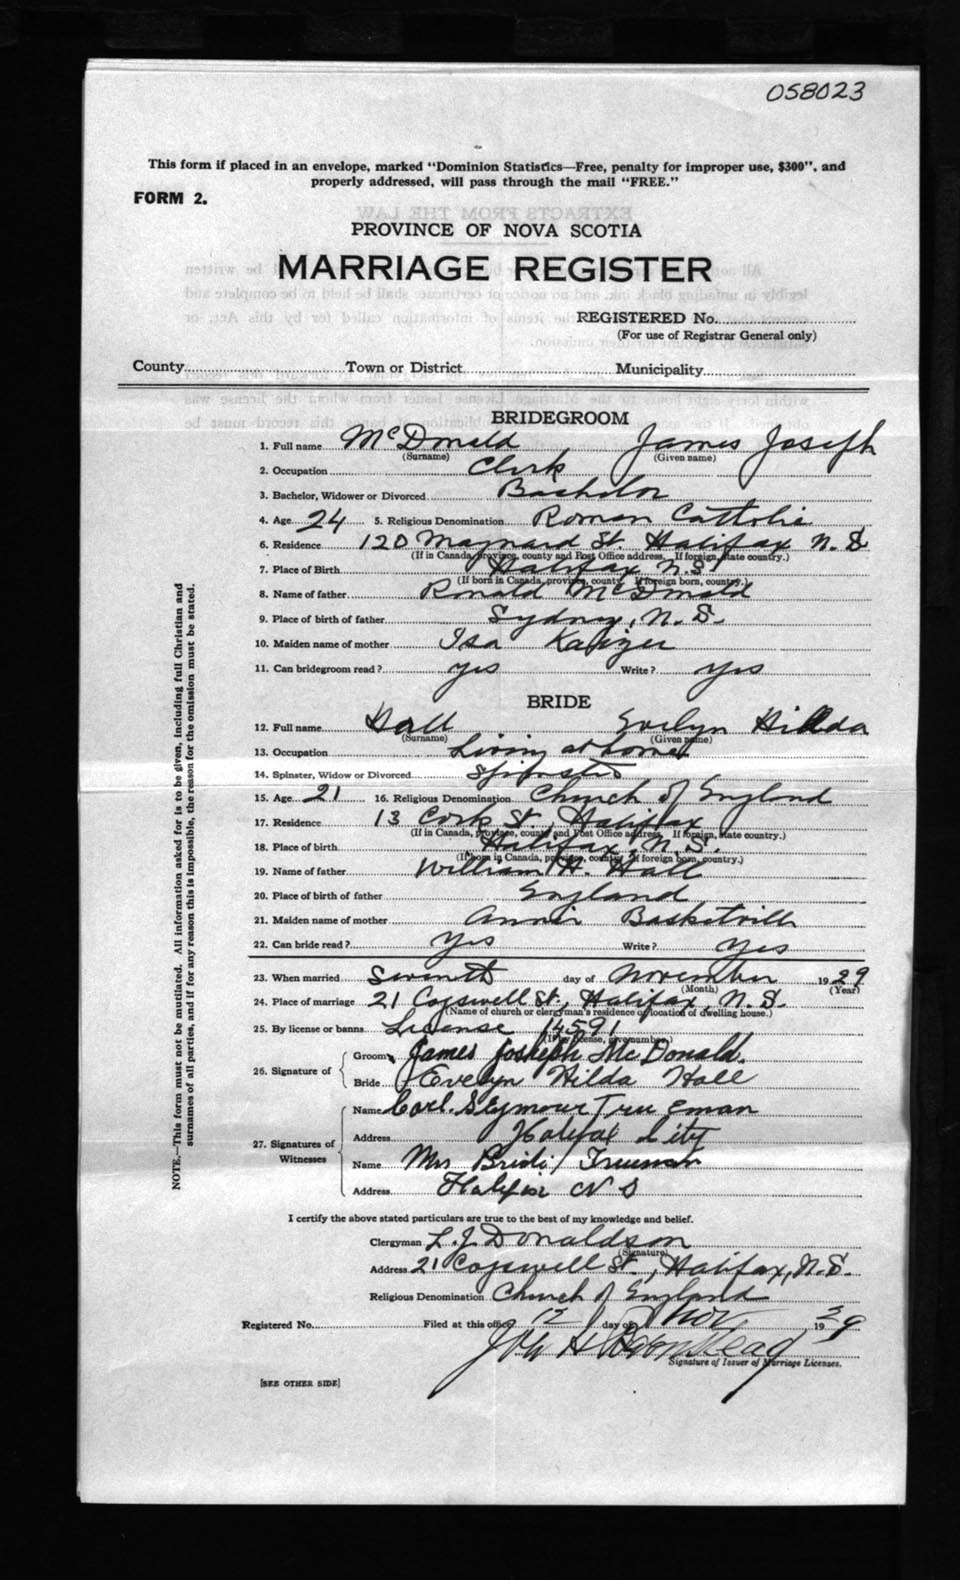 058023
This form if placed in an envelope, marked "Dominion Statistics—Free, penalty for improper use, $300", and
properly addressed, will pass through the mail "FREE."
FORM 2.
EXTRACTS FROM THE LAW
PROVINCE OF NOVA SCOTIA
MARRIAGE REGISTER
REGISTERED No.
(For use of Registrar General only)
County Town or District Municipality
BRIDEGROOM
1. Full name McDonald James Joseph
(Surname) (Given name)
2. Occupation Clerk
3. Bachelor, Widower or Divorced Bachelor
4. Age 24 5. Religious Denomination Roman Catholic
6. Residence 120 Maynard St. Halifax N.S
(If in Canada, province, county and Post Office address. If foreign, state country.)
7. Place of Birth Halifax N.S.
(If born in Canada, province, county. If foreign born, country.)
8. Name of father Ronald McDonald
9. Place of birth of father Sydney, N.S.
10. Maiden name of mother Isa
11. Can bridegroom read? yes Write? yes
BRIDE
12. Full name Hall Evelyn Hilda
(Surname) (Given name)
13. Occupation Living at home
14. Spinster, Widow or Divorced Spinster
15. Age 21 16. Religious Denomination Church of England
17. Residence 13 Cork St., Halifax
(If in Canada, province, county and Post Office address. If foreign, state country.)
18. Place of birth Halifax, N.S.
(If born in Canada, province, county. If foreign born, country.)
19. Name of father William H. Hall
20. Place of birth of father England
21. Maiden name of mother Annie
22. Can bride read? yes Write? yes
23. When married Seventh day of November 1929
(Month) (Year)
24. Place of marriage 21 Cogswell St., Halifax, N.S.
(Name of church or clergyman's residence or location of dwelling house.)
25. By license or banns License 14591
(If by license, give number.)
26. Signature of
Groom James Joseph McDonald.
Bride Evelyn Hilda Hall
27. Signatures of Witnesses
Name Carl. Seymour Trueman
Address Halifax City
Name Mrs Trueman
Address Halifax N S
I certify the above stated particulars are true to the best of my knowledge and belief.
Clergyman L. J. Donaldson
(Signature)
Address 21 Cogswell St., Halifax, N.S.
Religious Denomination Church of England
Registered No. Filed at this office 12 day of Nov 1929
Signature of Issuer of Marriage Licenses.
[SEE OTHER SIDE]
NOTE.—This form must not be mutilated. All information asked for is to be given, including full Christian and
surnames of all parties, and if for any reason this is impossible, the reason for the omission must be stated.